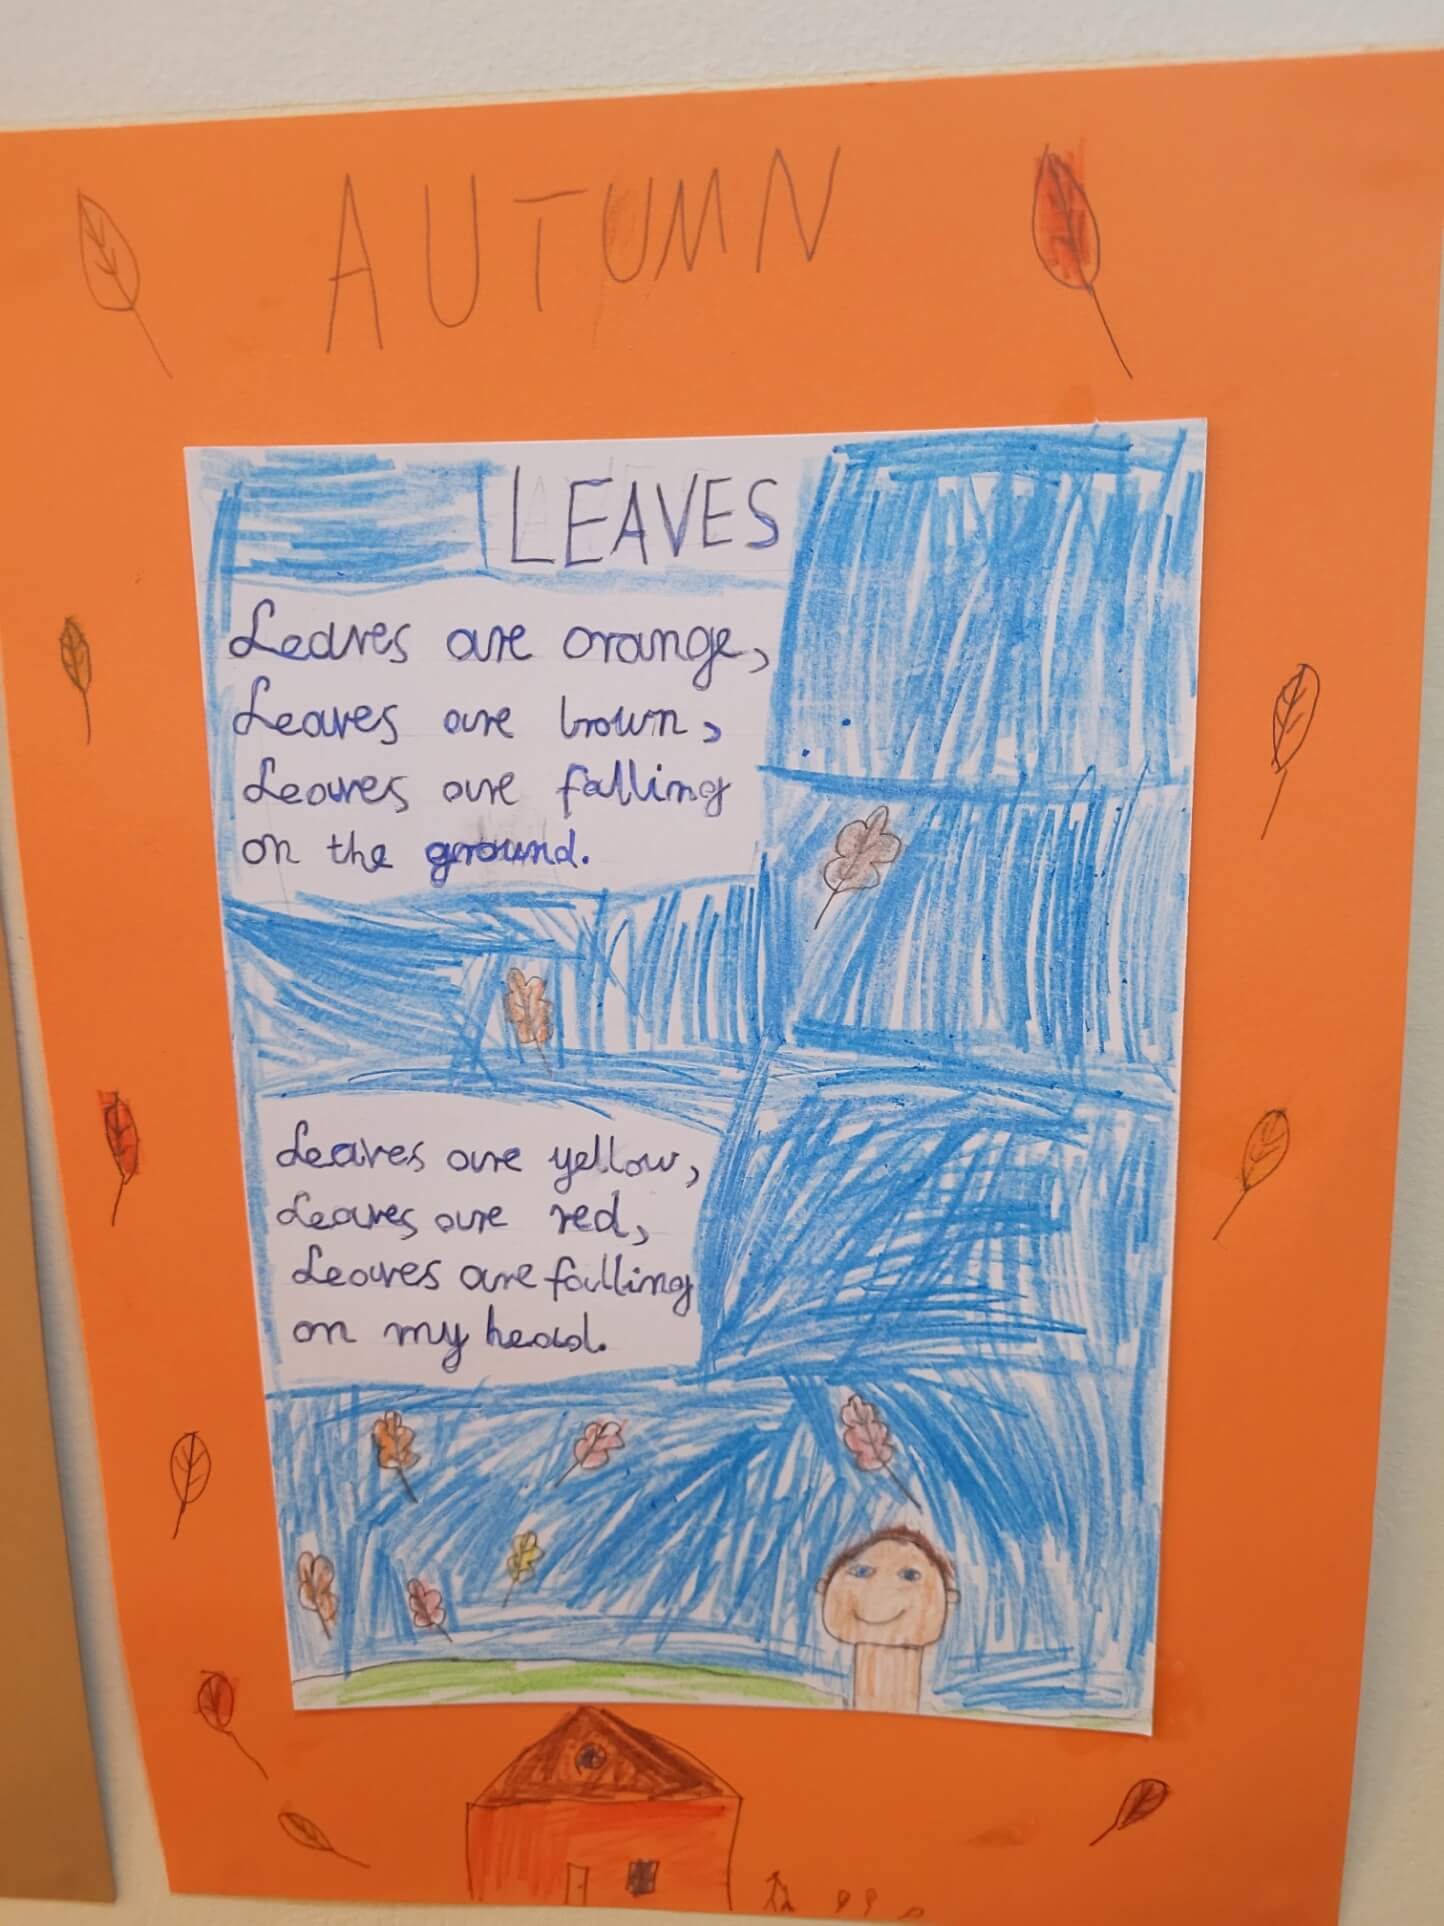 AUTUMN
LEAVES
Leaves are orange,
Leaves are brown,
Leaves are falling
on the ground.
Leaves are yellow,
Leaves are red,
Leaves are falling
on my head.